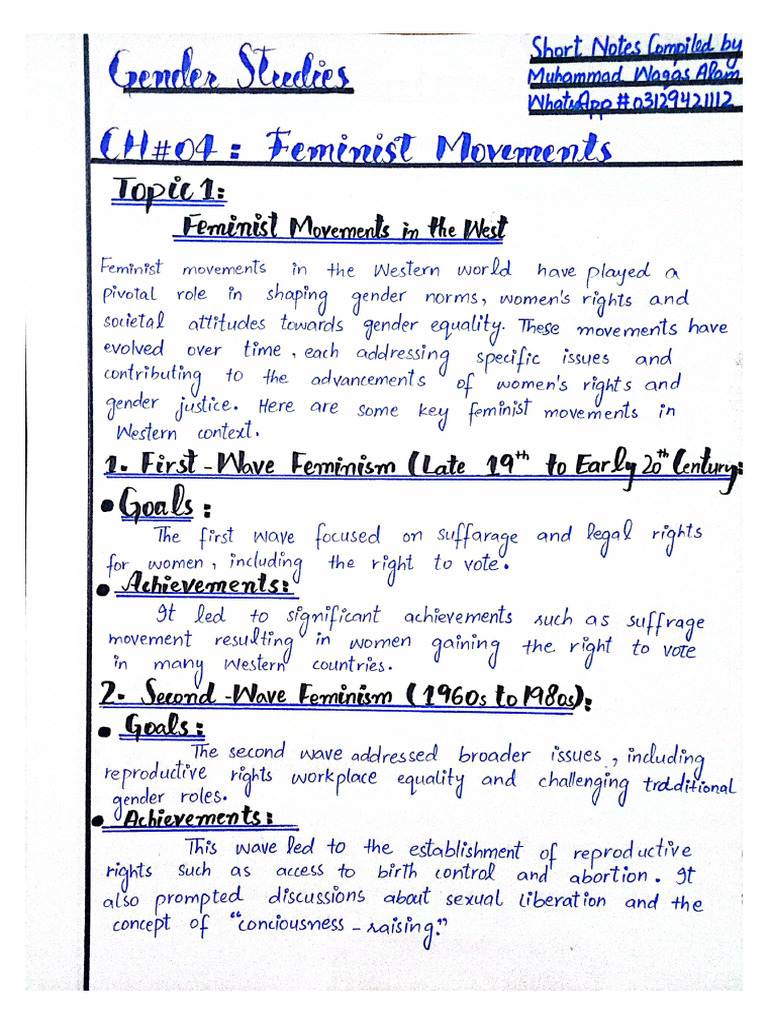 Gender Studies
Short Notes Compiled by
Muhammad Waqas Alam
WhatsApp # 03129421112
CH#04 : Feminist Movements
Topic 1:
Feminist Movements in the West
Feminist movements in the Western world have played a
pivotal role in shaping gender norms, women's rights and
societal attitudes towards gender equality. These movements have
evolved over time, each addressing specific issues and
contributing to the advancements of women's rights and
gender justice. Here are some key feminist movements in
Western context.
1. First-Wave Feminism (Late 19th to Early 20th Century:
• Goals:
The first wave focused on suffarage and legal rights
for women, including the right to vote.
• Achievements:
It led to significant achievements such as suffrage
movement resulting in women gaining the right to vote
in many Western countries.
2. Second-Wave Feminism (1960s to 1980s):
• Goals:
The second wave addressed broader issues, including
reproductive rights workplace equality and challenging traditional
gender roles.
• Achievements:
This wave led to the establishment of reproductive
rights such as access to birth control and abortion. It
also prompted discussions about sexual liberation and the
concept of "conciousness-raising."